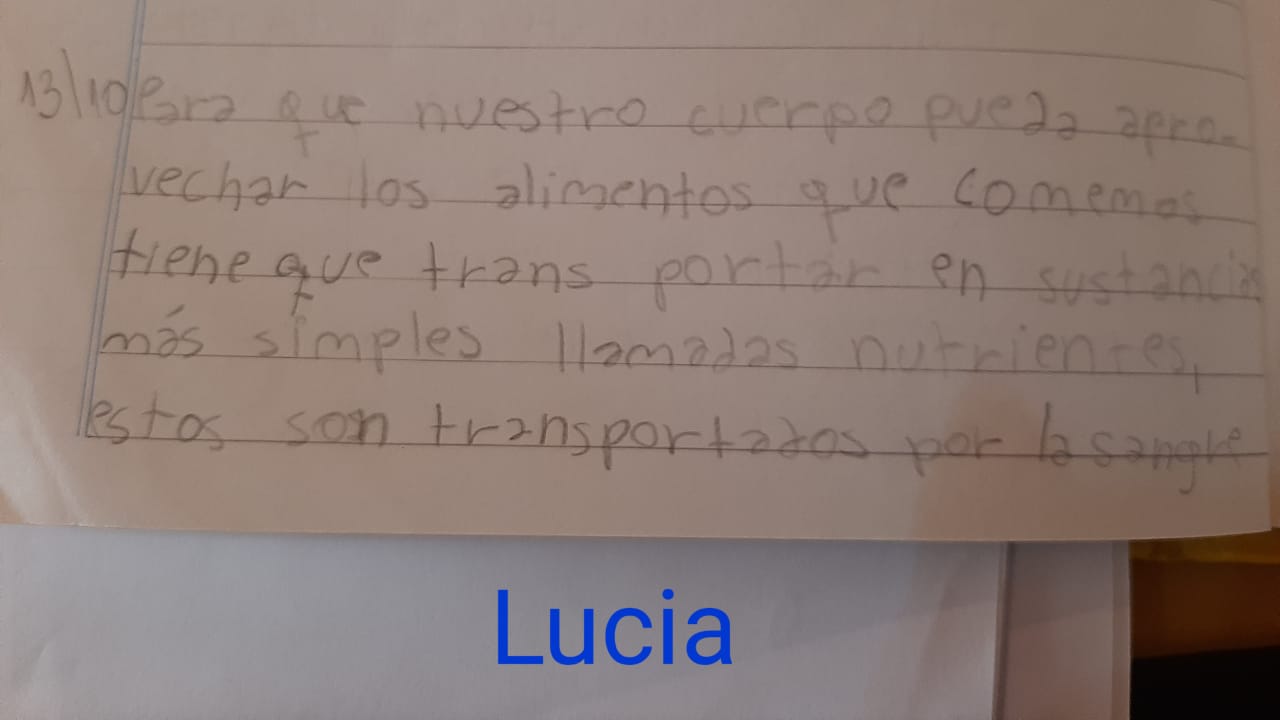 13\10 Para que nuestro cuerpo pueda apro-
vechar los alimentos que comemos
tiene que trans portar en sustancias
más simples llamadas nutrientes,
estos son transportados por la sangre
Lucia